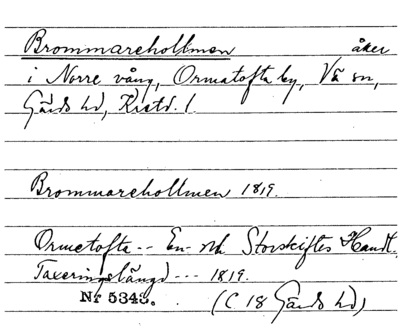 Brommareholmen åker
i Norre vång, Ormatofta by, Vä sn,
Gärds hd, Kristd. l
Brommareholmen 1819.
Ormetofta -- En- och Storskiftes Handl.
Taxeringslängd --- 1819.
Nr 5343. (C 18 Gärds hd)